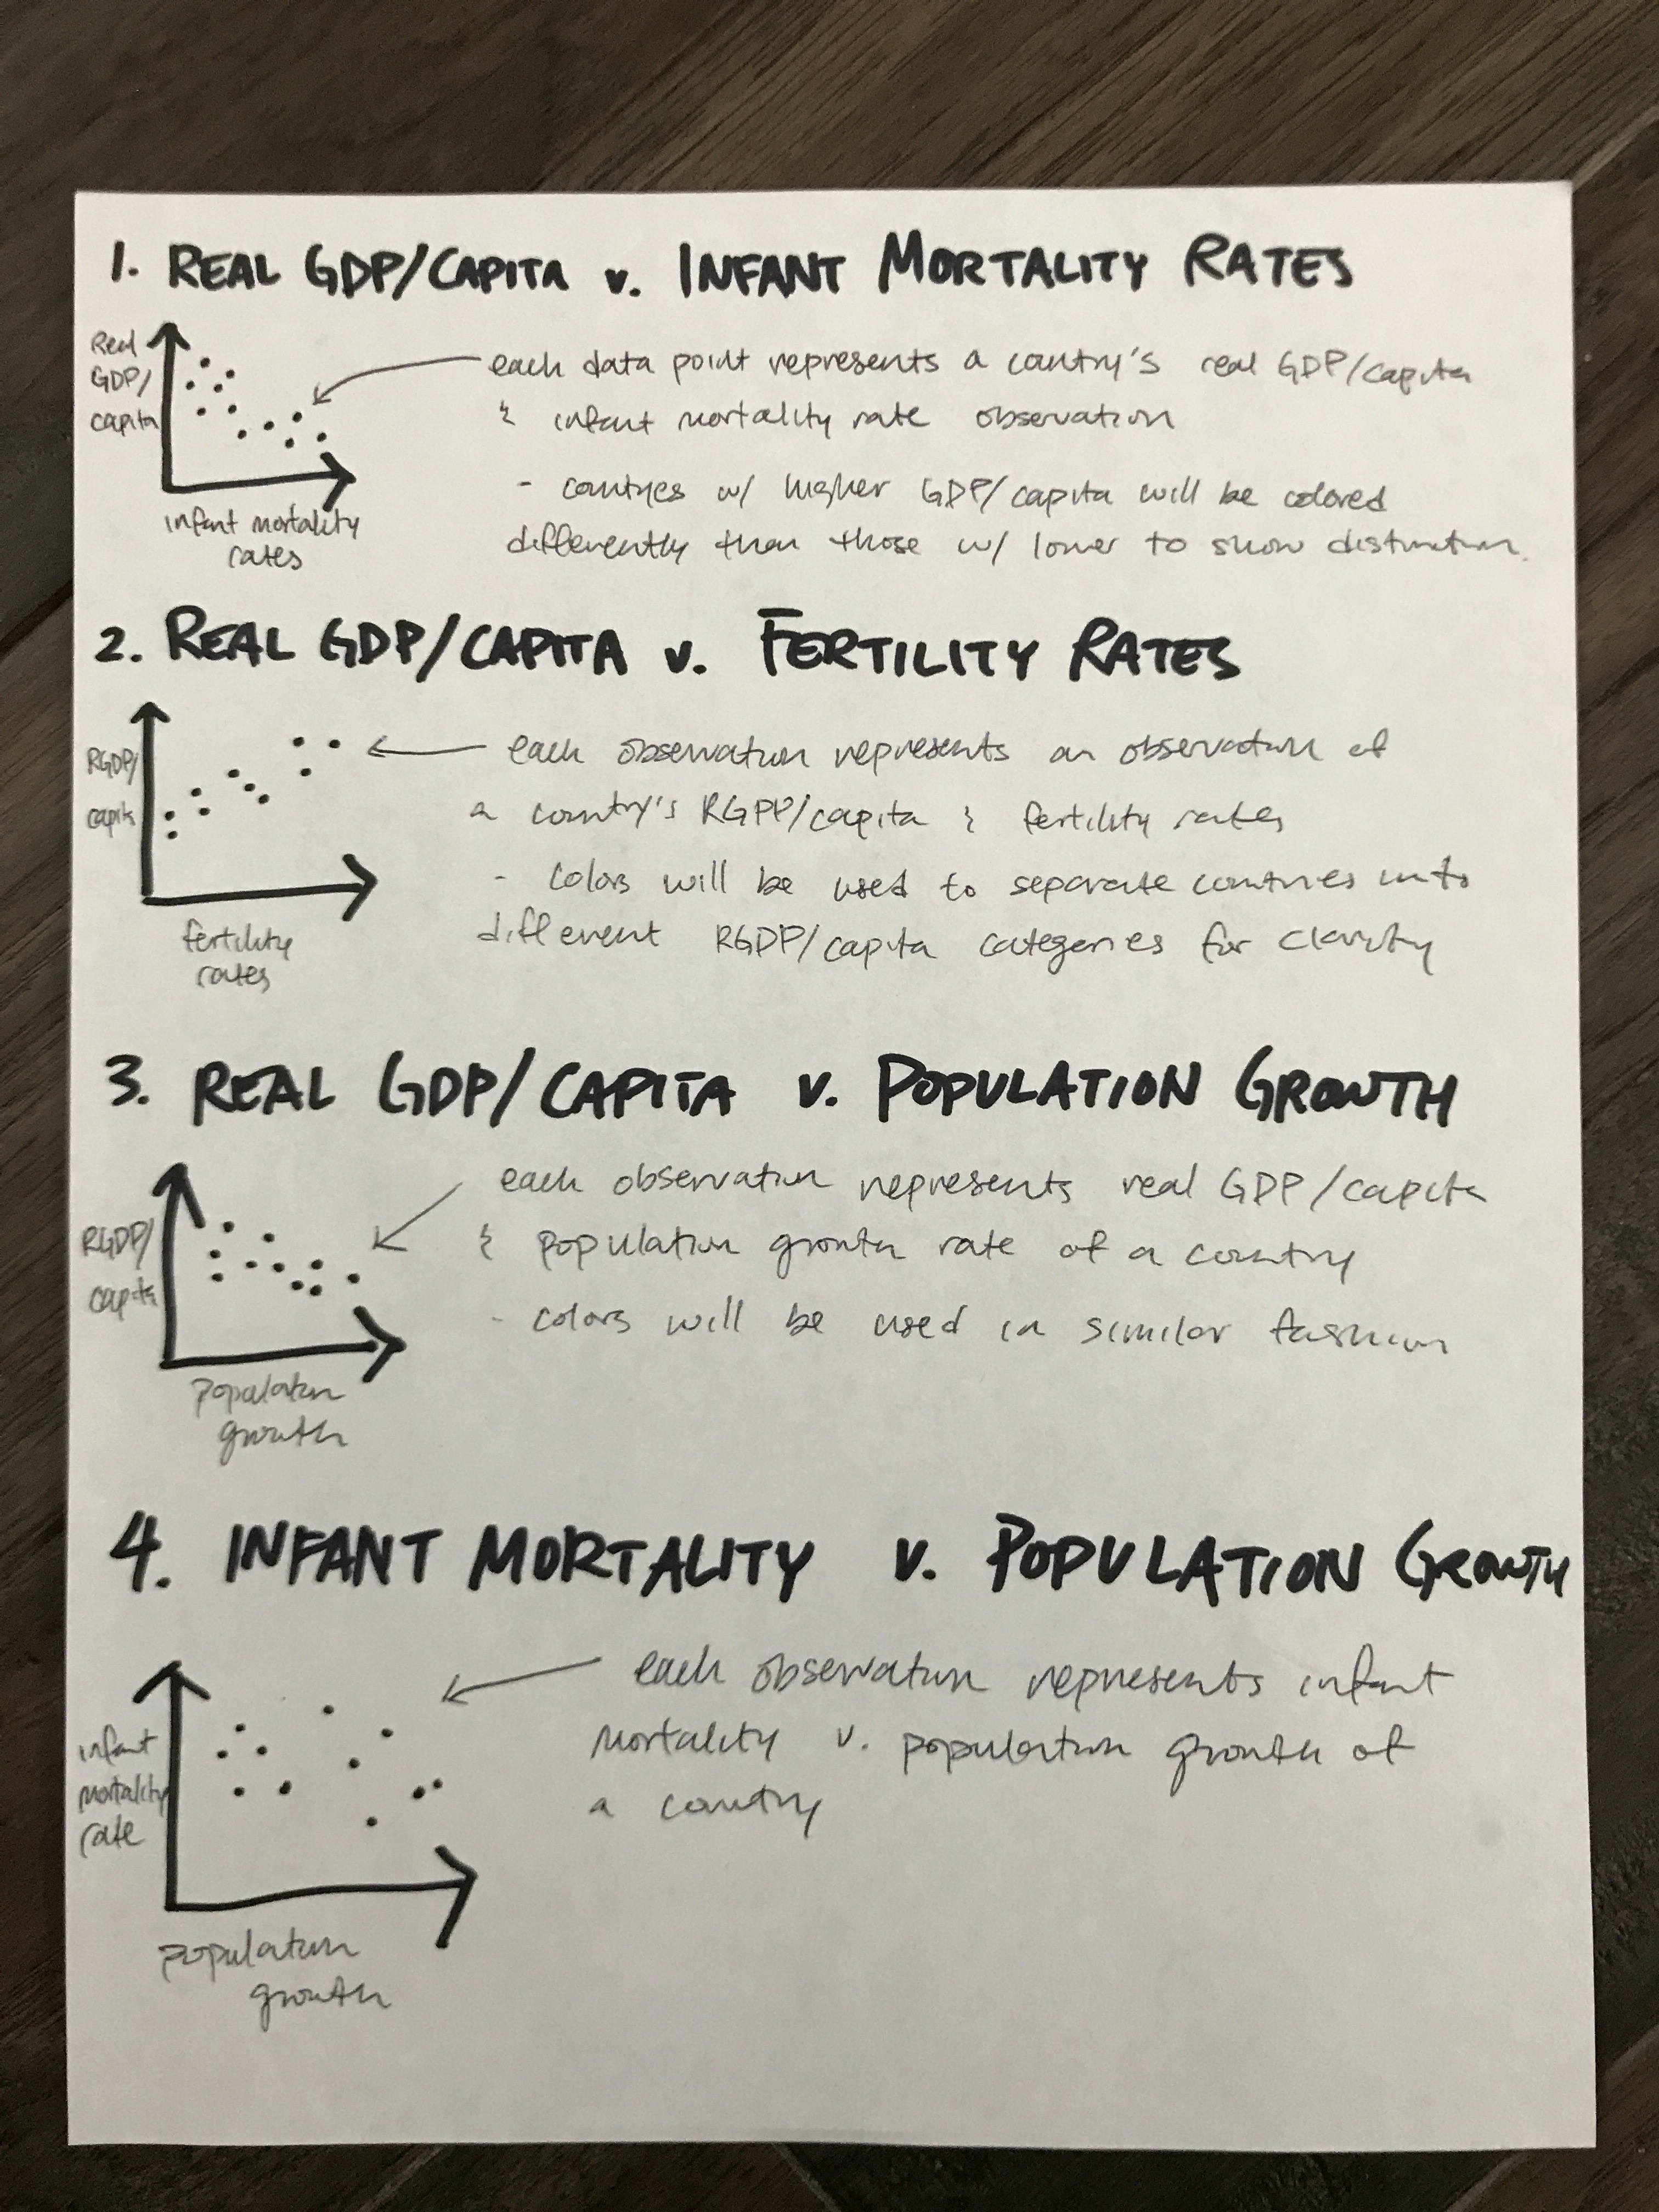 1. REAL GDP/CAPITA v. INFANT MORTALITY RATES
Real
GDP/
capita
infant mortality
rates
each data point represents a country's real GDP/capita
& infant mortality rate observation
- countries w/ higher GDP/capita will be colored
differently than those w/ lower to show distinction.
2. REAL GDP/CAPITA v. FERTILITY RATES
RGDP/
capita
fertility
rates
each observation represents an observation of
a country's RGDP/capita & fertility rates
- colors will be used to separate countries into
different RGDP/capita categories for clarity
3. REAL GDP/CAPITA v. POPULATION GROWTH
RGDP/
capita
population
growth
each observation represents real GDP/capita
& population growth rate of a country
- colors will be used in similar fashion
4. INFANT MORTALITY v. POPULATION GROWTH
infant
mortality
rate
population
growth
each observation represents infant
mortality v. population growth of
a country